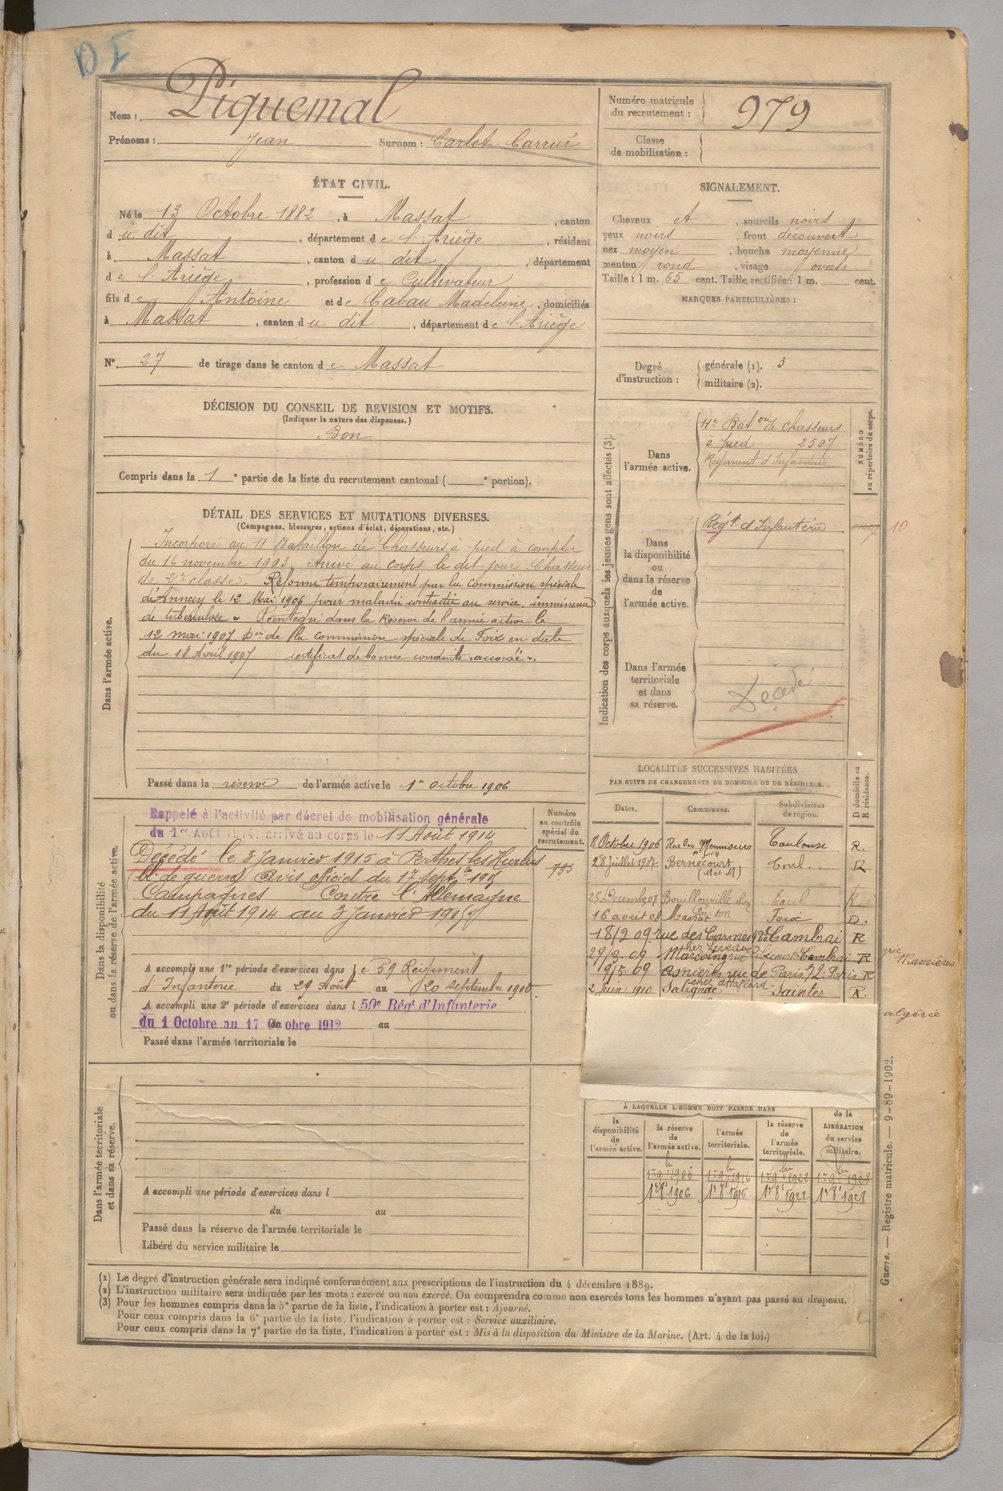 DI
Nom : Piquemal
Prénoms : Jean Surnom : Carlet Carrué
Numéro matricule
du recrutement : 979
Classe
de mobilisation :
ÉTAT CIVIL.
Né le 13 Octobre 1882, à Massat, canton
du dit, département de l'Ariège, résidant
à Massat, canton du dit, département
de l'Ariège, profession de Cultivateur
fils de Antoine et de Cabau Madeleine, domiciliés
à Massat, canton du dit, département de l'Ariège
N° 27 de tirage dans le canton de Massat
SIGNALEMENT.
Cheveux et, sourcils noirs
yeux noirs, front découvert
nez moyen, bouche moyenne
menton rond, visage ovale
Taille : 1 m. 65 cent. Taille rectifiée : 1 m. cent.
MARQUES PARTICULIÈRES :
Degré
d'instruction :
générale (1). 3
militaire (2).
DÉCISION DU CONSEIL DE REVISION ET MOTIFS.
(Indiquer la nature des dispenses.)
Bon
Compris dans la 1e partie de la liste du recrutement cantonal ( e portion).
DÉTAIL DES SERVICES ET MUTATIONS DIVERSES.
(Campagnes, blessures, actions d'éclat, décorations, etc.)
Dans l'armée active.
Incorporé au 11 Bataillon de Chasseurs à pied à compter
du 16 novembre 1903. Arrivé au corps le dit jour Chasseur
de 2e classe. Réformé temporairement par la Commission spéciale
d'Annecy le 12 Mai 1906 pour maladie contractée au service imminence
de tuberculose. Réintégré dans la Réserve de l'armée active le
12 mai 1907 Don de la commission spéciale de Foix en date
du 18 Avril 1907 certificat de bonne conduite accordé.
Passé dans la réserve de l'armée active le 1er octobre 1906
Indication des corps auxquels les jeunes gens sont affectés (3).
NUMÉRO
au répertoire du corps.
Dans
l'armée active.
11e Baton de Chasseurs
à pied 2507
Régiment d'Infanterie
Dans
la disponibilité
ou
dans la réserve
de
l'armée active.
Régt d'Infanterie
10
Dans l'armée
territoriale
et dans
sa réserve.
Décédé
Dans la disponibilité
ou dans la réserve de l'armée active.
Numéro
au contrôle
spécial du
recrutement.
Rappelé à l'activité par décret de mobilisation générale
du 1er Août 1914, arrivé au corps le 11 Août 1914
Décédé le 3 Janvier 1915 à Perthes les Hurlus
Avis officiel du 17 septe 1915
Campagnes Contre l'Allemagne
du 11 Août 1914 au 3 Janvier 1915
793
A accompli une 1re période d'exercices dans le 59 Régiment
d'Infanterie du 29 Août au 20 septembre 1910
A accompli une 2e période d'exercices dans l 59e Régt d'Infanterie
du 1 Octobre au 17 Octobre 1912 au
Passé dans l'armée territoriale le
LOCALITÉS SUCCESSIVES HABITÉES
PAR SUITE DE CHANGEMENTS DE DOMICILE OU DE RÉSIDENCE.
D domicile ou
R résidence.
Dates. Communes. Subdivisions
de région.
8 Octobre 1906 Rue Toulouse R.
28 Juillet 1907 Bernécourt (M et M) Toul R
25 Décembre 07 Bouillonville Toul R.
16 août 08 Massat Foix D.
18/2 09 rue des Carmes Cambrai R
29/3 09 Marcoing Cambrai R
19/5 09 Asnières rue de Paris 72 Paris R
2 Juin 1910 Salignac Saintes R
Mamières
algérie
A LAQUELLE L'HOMME DOIT PASSER DANS
de la
LIBÉRATION
du service
militaire.
la
disponibilité
de
l'armée active.
la réserve
de
l'armée active.
l'armée
territoriale.
la réserve
de
l'armée
territoriale.
1er 8bre 1906 1er 8bre 1916 1er 8bre 1922 1er 8bre 1928
Dans l'armée territoriale
et dans sa réserve.
A accompli une période d'exercices dans l
du au
Passé dans la réserve de l'armée territoriale le
Libéré du service militaire le
Guerre. — Registre matricule. — 9-89-1902.
(1) Le degré d'instruction générale sera indiqué conformément aux prescriptions de l'instruction du 4 décembre 1889.
(2) L'instruction militaire sera indiquée par les mots : exercé ou non exercé. On comprendra comme non exercés tous les hommes n'ayant pas passé au drapeau.
(3) Pour les hommes compris dans la 5e partie de la liste, l'indication à porter est : Ajourné.
Pour ceux compris dans la 6e partie de la liste, l'indication à porter est : Service auxiliaire.
Pour ceux compris dans la 7e partie de la liste, l'indication à porter est : Mis à la disposition du Ministre de la Marine. (Art. 4 de la loi.)